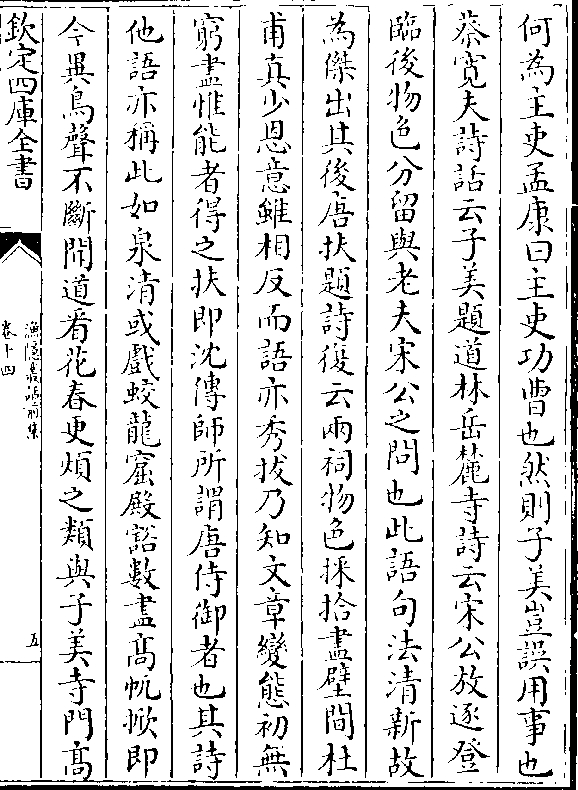 何為主吏孟康曰主吏功曹也然則子美豈誤用事也
蔡寛夫詩話云子美題道林岳麓寺詩云宋公放逐登
臨後物色分留與老夫宋公之問也此語句法清新故
為傑出其後唐扶題詩復云兩祠物色採拾盡壁間杜
甫真少恩意雖相反而語亦秀拔乃知文章變態初無
窮盡惟能者得之扶即沈傳師所謂唐侍御者也其詩
他語亦稱此如泉清或戲蛟龍窟殿豁數盡髙帆掀即
今異鳥聲不斷聞道看花春更煩之類與子美寺門髙
欽定四庫全書
漁隱叢話前集
卷十四
五